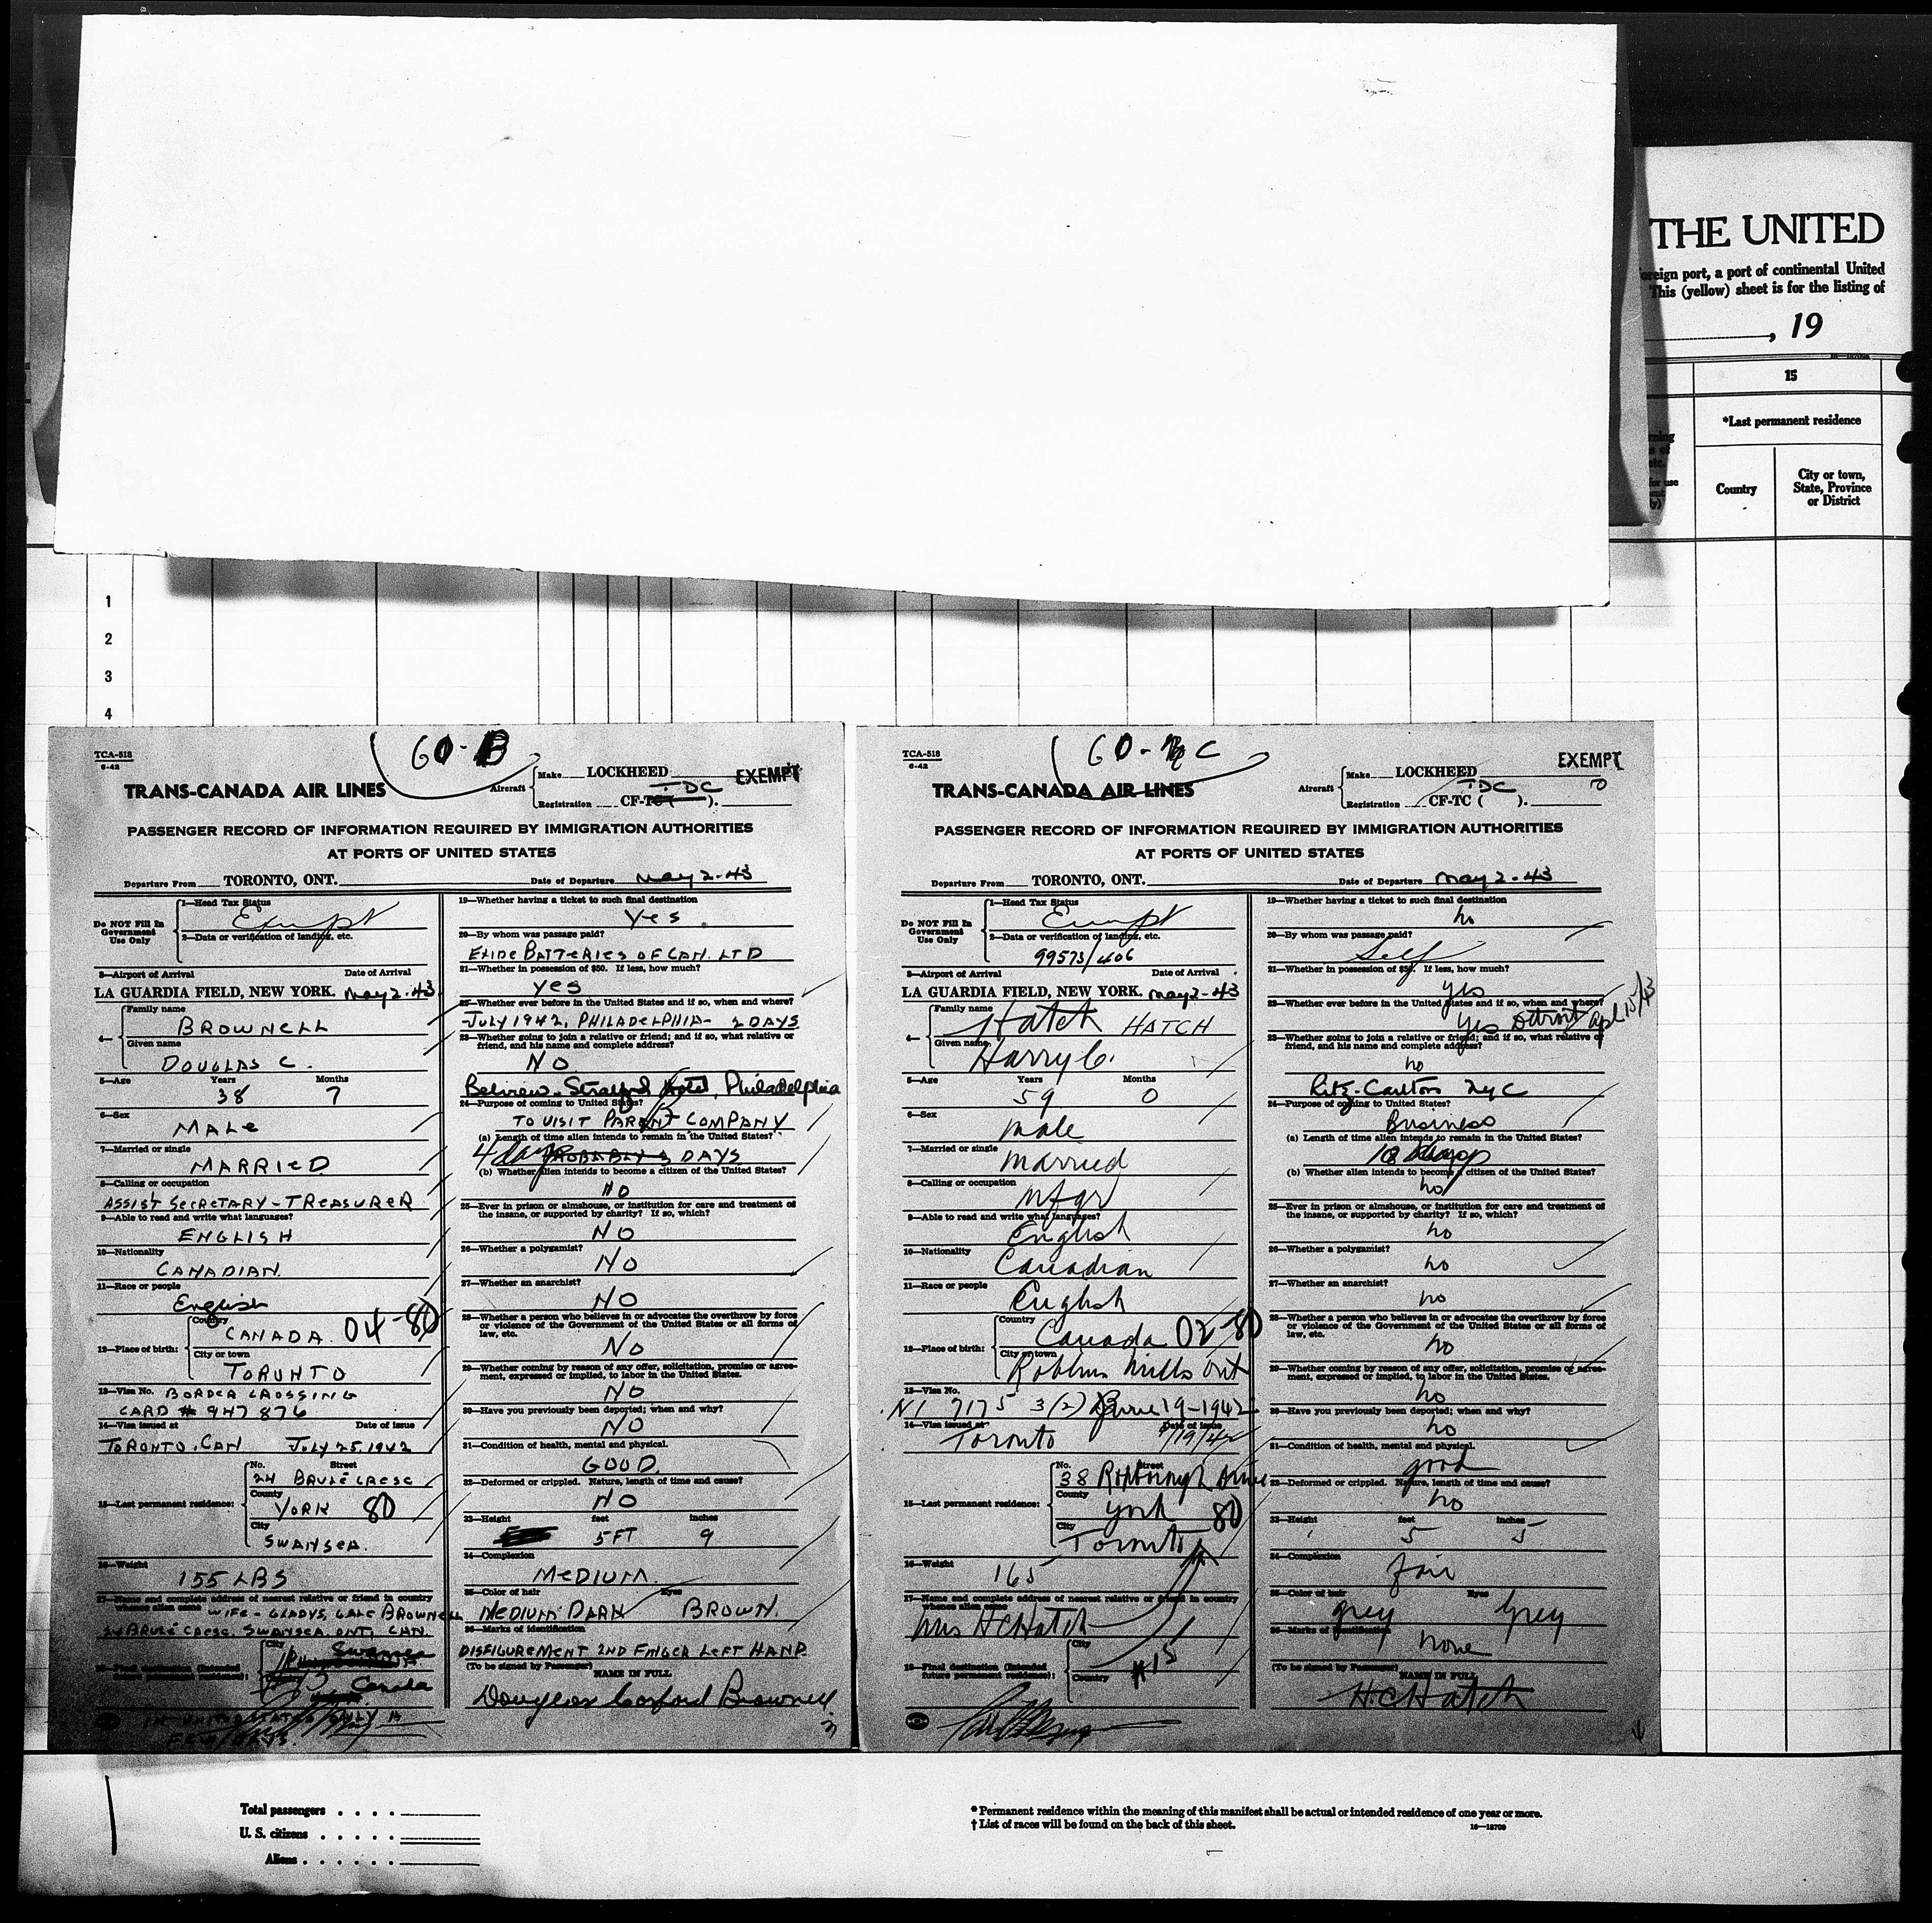 THE UNITED
oreign port, a port of continental United
This (yellow) sheet is for the listing of
, 19
15
*Last permanent residence
Country
City or town,
State, Province
or District
1
2
3
4
TCA-518
6-42
60-B
TRANS-CANADA AIR LINES
Aircraft
Make LOCKHEED
EXEMPT
Registration CF-TDC ).
PASSENGER RECORD OF INFORMATION REQUIRED BY IMMIGRATION AUTHORITIES
AT PORTS OF UNITED STATES
Departure From TORONTO, ONT. Date of Departure May 2-43
Do NOT Fill In
Government
Use Only
1—Head Tax Status
Exempt
2—Data or verification of landing, etc.
3—Airport of Arrival Date of Arrival
LA GUARDIA FIELD, NEW YORK. May 2-43
4—
Family name
BROWNELL
Given name
DOUGLAS C.
5—Age Years Months
38 7
6—Sex
MALE
7—Married or single
MARRIED
8—Calling or occupation
ASSIST SECRETARY-TREASURER
9—Able to read and write what languages?
ENGLISH
10—Nationality
CANADIAN.
11—Race or people
English
12—Place of birth:
Country
CANADA. 04-80
City or town
TORONTO
13—Visa No. BORDER CROSSING
CARD # 947876
14—Visa issued at Date of issue
TORONTO, CAN JULY 25, 1942
15—Last permanent residence:
No. Street
24 BRULÉ CRESC
County
YORK 80
City
SWANSEA.
16—Weight
155 LBS
17—Name and complete address of nearest relative or friend in country
whence alien came WIFE - GLADYS, GALE BROWNELL
24 BRULÉ CRESC. SWANSEA. ONT, CAN.
18—Final destination (Intended
future permanent residence):
City
Swansea
Canada
19—Whether having a ticket to such final destination
Yes.
20—By whom was passage paid?
EXIDE BATTERIES OF CAN. LTD
21—Whether in possession of $50. If less, how much?
YES
22—Whether ever before in the United States and if so, when and where?
JULY 1942, PHILADELPHIA- 2 DAYS
23—Whether going to join a relative or friend; and if so, what relative or
friend, and his name and complete address?
NO
Belview-Stratford Hotel, Philadelphia
24—Purpose of coming to United States?
TO VISIT PARENT COMPANY
(a) Length of time alien intends to remain in the United States?
4 days PROBABLY 3 DAYS
(b) Whether alien intends to become a citizen of the United States?
NO
25—Ever in prison or almshouse, or institution for care and treatment of
the insane, or supported by charity? If so, which?
NO
26—Whether a polygamist?
NO
27—Whether an anarchist?
NO
28—Whether a person who believes in or advocates the overthrow by force
or violence of the Government of the United States or all forms of
law, etc.
NO
29—Whether coming by reason of any offer, solicitation, promise or agree-
ment, expressed or implied, to labor in the United States.
NO
30—Have you previously been deported; when and why?
NO
31—Condition of health, mental and physical.
GOOD
32—Deformed or crippled. Nature, length of time and cause?
NO
33—Height feet inches
5 FT 9
34—Complexion
MEDIUM.
35—Color of hair Eyes
MEDIUM DARK BROWN.
36—Marks of identification
DISFIGUREMENT 2ND FINGER LEFT HAND.
(To be signed by Passenger) NAME IN FULL
Douglas Cosford Brownell
TCA-518
6-42
60-C
TRANS-CANADA AIR LINES
Aircraft
Make LOCKHEED
EXEMPT
Registration CF-TC ( TDC ).
PASSENGER RECORD OF INFORMATION REQUIRED BY IMMIGRATION AUTHORITIES
AT PORTS OF UNITED STATES
Departure From TORONTO, ONT. Date of Departure May 2-43
Do NOT Fill In
Government
Use Only
1—Head Tax Status
Exempt
2—Data or verification of landing, etc.
99573/406
3—Airport of Arrival Date of Arrival
LA GUARDIA FIELD, NEW YORK. May 2-43
4—
Family name
Hatch HATCH
Given name
Harry C.
5—Age Years Months
59 0
6—Sex
male
7—Married or single
married
8—Calling or occupation
mfgr
9—Able to read and write what languages?
English
10—Nationality
Canadian
11—Race or people
English
12—Place of birth:
Country
Canada 02-80
City or town
Roblins Mills Ont
13—Visa No.
7175 3(2) June 19-1942
14—Visa issued at Date of issue
Toronto
15—Last permanent residence:
No. Street
38 Roxborough
County
York 80
City
Toronto
16—Weight
165
17—Name and complete address of nearest relative or friend in country
whence alien came
Mrs HC Hatch
18—Final destination (Intended
future permanent residence):
City
Country
#15
19—Whether having a ticket to such final destination
no
20—By whom was passage paid?
Self
21—Whether in possession of $50. If less, how much?
yes
22—Whether ever before in the United States and if so, when and where?
yes Detroit Apl 15/43
23—Whether going to join a relative or friend; and if so, what relative or
friend, and his name and complete address?
no
Ritz-Carlton NYC
24—Purpose of coming to United States?
Business
(a) Length of time alien intends to remain in the United States?
10 days
(b) Whether alien intends to become a citizen of the United States?
no
25—Ever in prison or almshouse, or institution for care and treatment of
the insane, or supported by charity? If so, which?
no
26—Whether a polygamist?
no
27—Whether an anarchist?
no
28—Whether a person who believes in or advocates the overthrow by force
or violence of the Government of the United States or all forms of
law, etc.
no
29—Whether coming by reason of any offer, solicitation, promise or agree-
ment, expressed or implied, to labor in the United States.
no
30—Have you previously been deported; when and why?
no
31—Condition of health, mental and physical.
good
32—Deformed or crippled. Nature, length of time and cause?
no
33—Height feet inches
5 5
34—Complexion
fair
35—Color of hair Eyes
grey Grey
36—Marks of identification
none
(To be signed by Passenger) NAME IN FULL
H.C. Hatch
Total passengers . . . .
U. S. citizens . . . . .
Aliens . . . . . .
* Permanent residence within the meaning of this manifest shall be actual or intended residence of one year or more.
† List of races will be found on the back of this sheet.